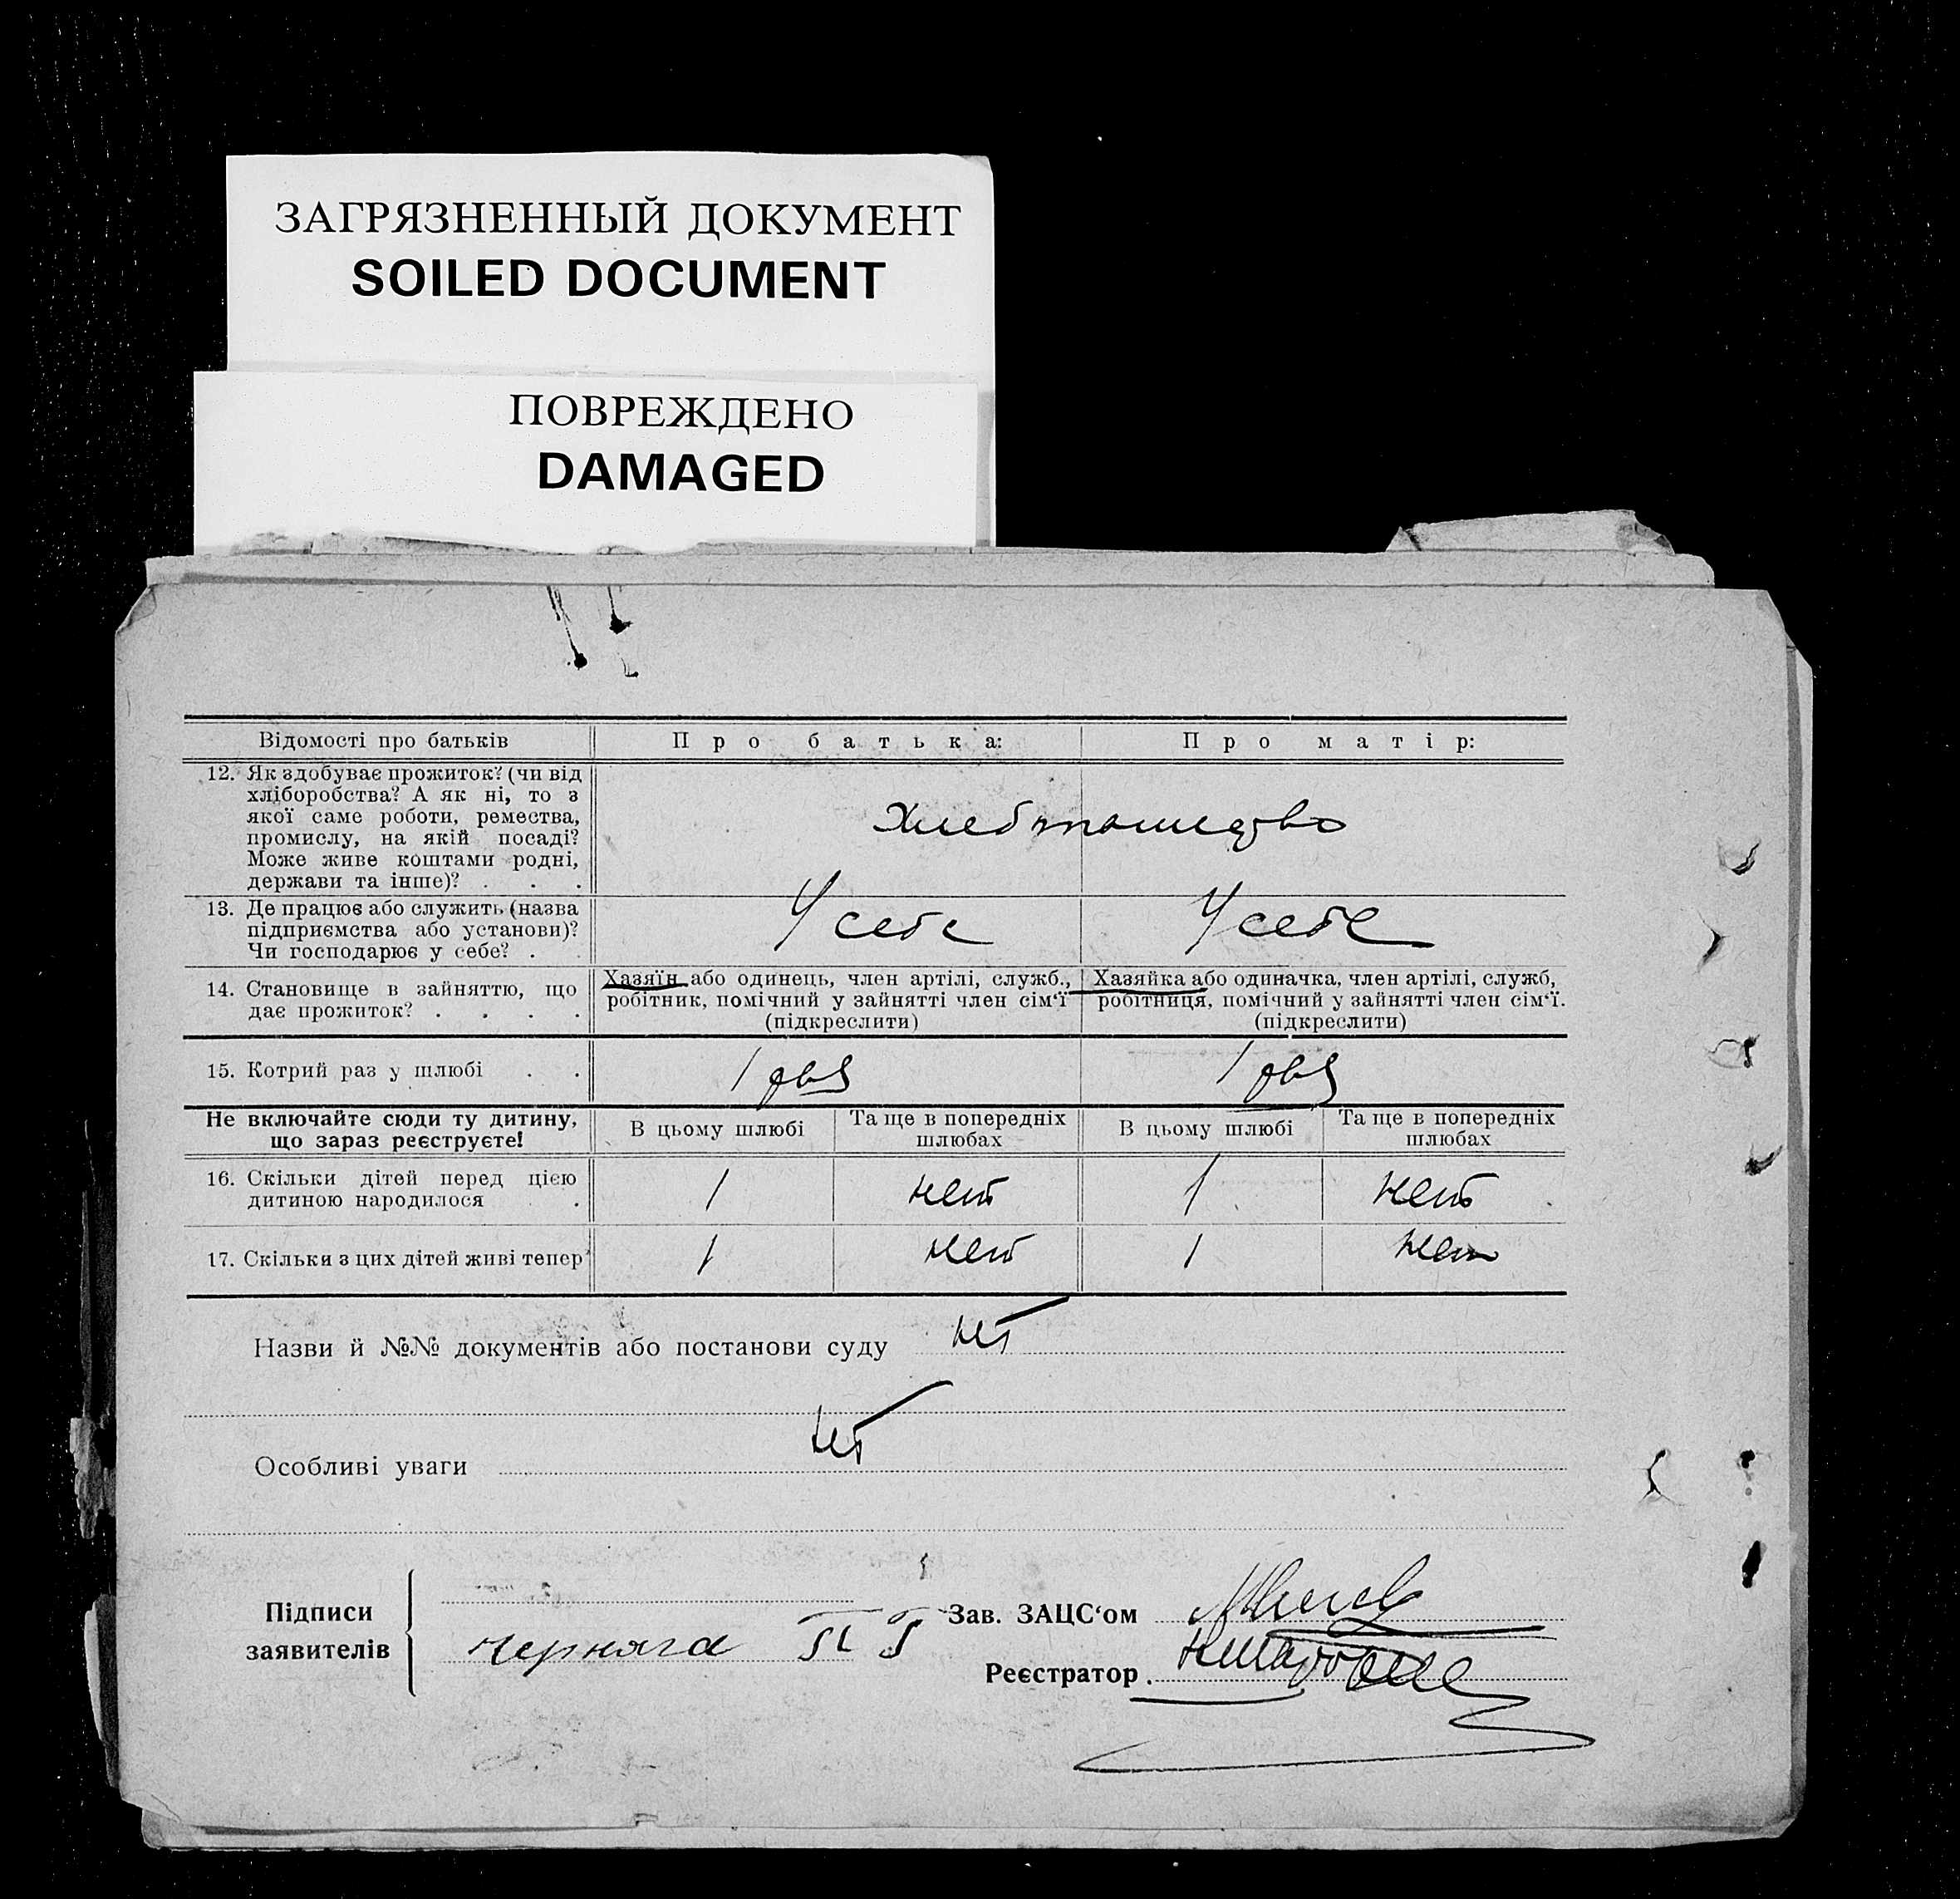 ЗАГРЯЗНЕННЫЙ ДОКУМЕНТ
SOILED DOCUMENT
ПОВРЕЖДЕНО
DAMAGED
Відомості про батьків Про батька: Про матір:
12. Як здобуває прожиток? (чи від
хліборобства? А як ні, то з
якої саме роботи, ремества,
промислу, на якій посаді?
Може живе коштами родні,
держави та інше)? . . .
Хлебопашество
13. Де працює або служить (назва
підприємства або установи)?
Чи господарює у себе? .
У себе У себе
14. Становище в зайняттю, що
дає прожиток? . . . .
Хазяїн або одинець, член артілі, служб.,
робітник, помічний у зайнятті член сім‘ї
(підкреслити)
Хазяйка або одиначка, член артілі, служб,
робітниця, помічний у зайнятті член сім‘ї.
(підкреслити)
15. Котрий раз у шлюбі . . 1 1
Не включайте сюди ту дитину,
що зараз реєструєте!
В цьому шлюбі Та ще в попередніх
шлюбах
В цьому шлюбі Та ще в попередніх
шлюбах
16. Скільки дітей перед цією
дитиною народилося .
1 нет 1 нет
17. Скільки з цих дітей живі тепер 1 нет 1 нет
Назви й №№ документів або постанови суду нет
Особливі уваги нет
Підписи
заявителів
Черняга П Г
Зав. ЗАЦС‘ом
Реєстратор .